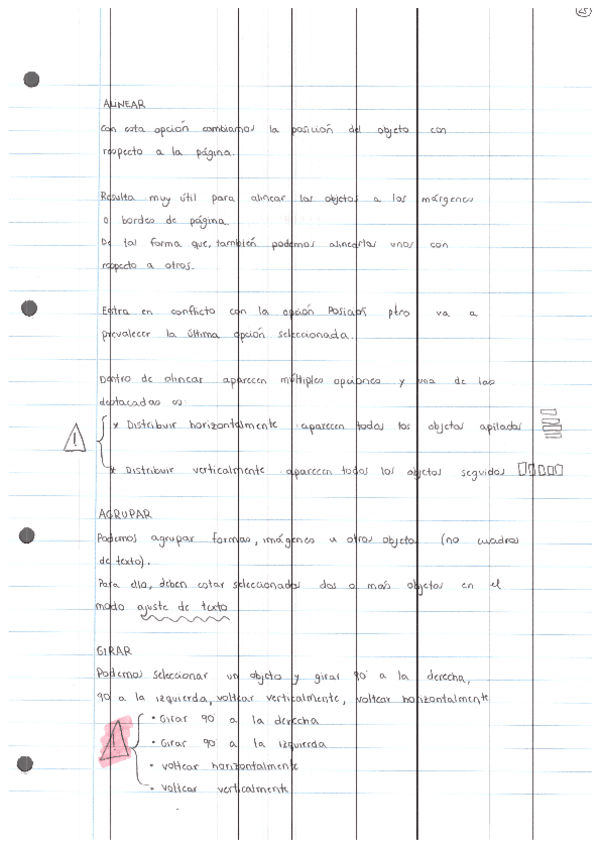 25
ALINEAR
Con esta opción cambiamos la posición del objeto con
respecto a la página.
Resulta muy útil para alinear los objetos a los márgenes
o bordes de página.
De tal forma que, también podemos alinearlos unos con
respecto a otros.
Entra en conflicto con la opción Posición pero va a
prevalecer la última opción seleccionada.
Dentro de alinear aparecen múltiples opciones y una de las
destacadas es:
* Distribuir horizontalmente aparecen todos los objetos apilados
* Distribuir verticalmente aparecen todos los objetos seguidos
AGRUPAR
Podemos agrupar formas, imágenes u otros objetos (no cuadros
de texto).
Para ello, deben estar seleccionados dos o más objetos en el
modo ajuste de texto
GIRAR
Podemos seleccionar un objeto y girar 90° a la derecha,
90 a la izquierda, voltear verticalmente, voltear horizontalmente
• Girar 90° a la derecha
• Girar 90° a la izquierda
• voltear horizontalmente
• voltear verticalmente